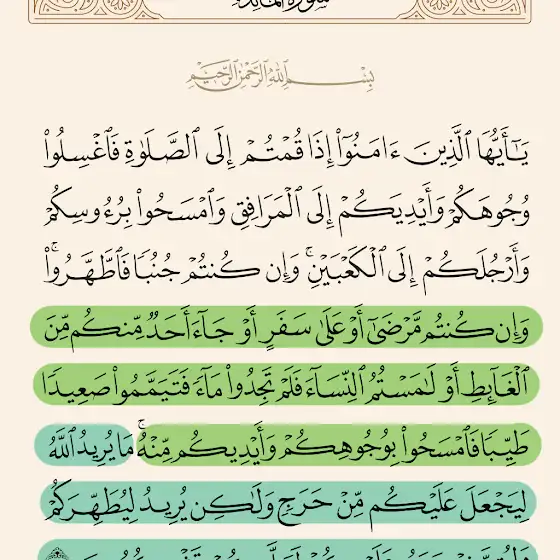 سورة المائدة
بِسْمِ ٱللَّهِ ٱلرَّحْمَٰنِ ٱلرَّحِيمِ
يَٰٓأَيُّهَا ٱلَّذِينَ ءَامَنُوٓا۟ إِذَا قُمْتُمْ إِلَى ٱلصَّلَوٰةِ فَٱغْسِلُوا۟
وُجُوهَكُمْ وَأَيْدِيَكُمْ إِلَى ٱلْمَرَافِقِ وَٱمْسَحُوا۟ بِرُءُوسِكُمْ
وَأَرْجُلَكُمْ إِلَى ٱلْكَعْبَيْنِ ۚ وَإِن كُنتُمْ جُنُبًا فَٱطَّهَّرُوا۟ ۚ
وَإِن كُنتُم مَّرْضَىٰٓ أَوْ عَلَىٰ سَفَرٍ أَوْ جَآءَ أَحَدٌ مِّنكُم مِّنَ
ٱلْغَآئِطِ أَوْ لَٰمَسْتُمُ ٱلنِّسَآءَ فَلَمْ تَجِدُوا۟ مَآءً فَتَيَمَّمُوا۟ صَعِيدًا
طَيِّبًا فَٱمْسَحُوا۟ بِوُجُوهِكُمْ وَأَيْدِيكُم مِّنْهُ ۚ مَا يُرِيدُ ٱللَّهُ
لِيَجْعَلَ عَلَيْكُم مِّنْ حَرَجٍ وَلَٰكِن يُرِيدُ لِيُطَهِّرَكُمْ